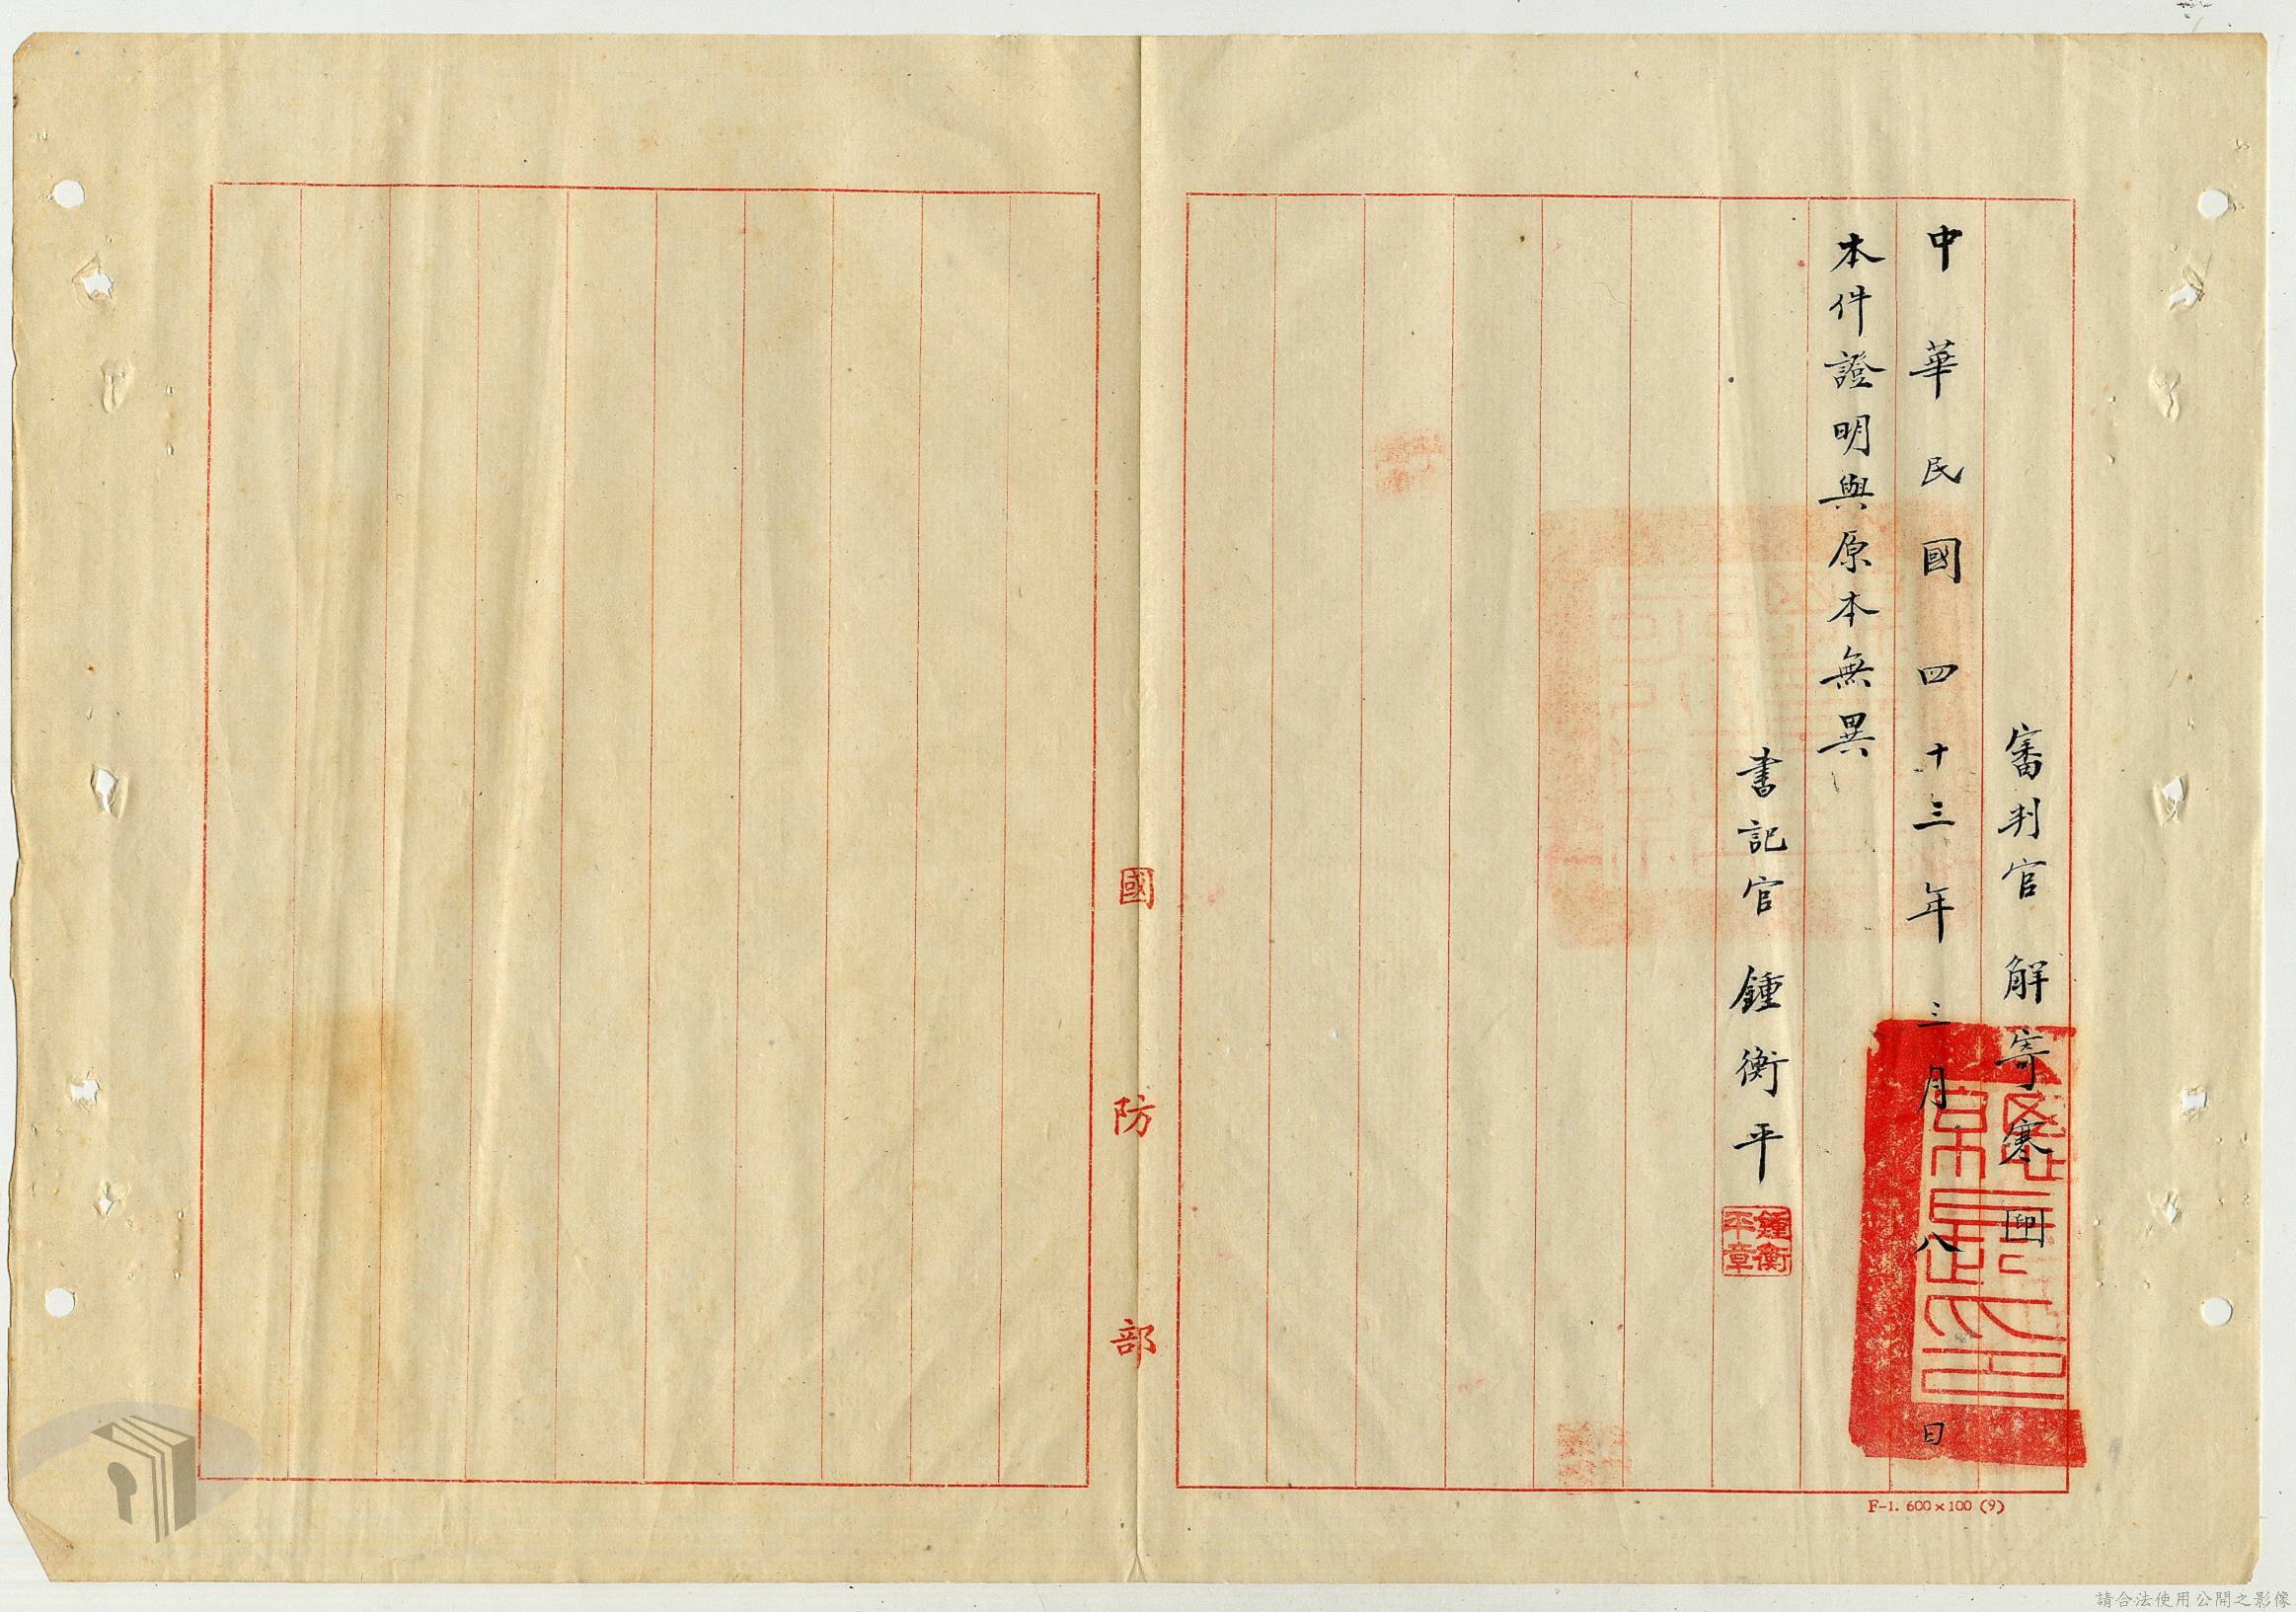 審判官 解寄寒 印
中華民國四十三年三月八日
本件證明與原本無異
書記官 鍾衡平
鍾衡平章
國防部
F-1. 600×100 (9)
請合法使用公開之影像